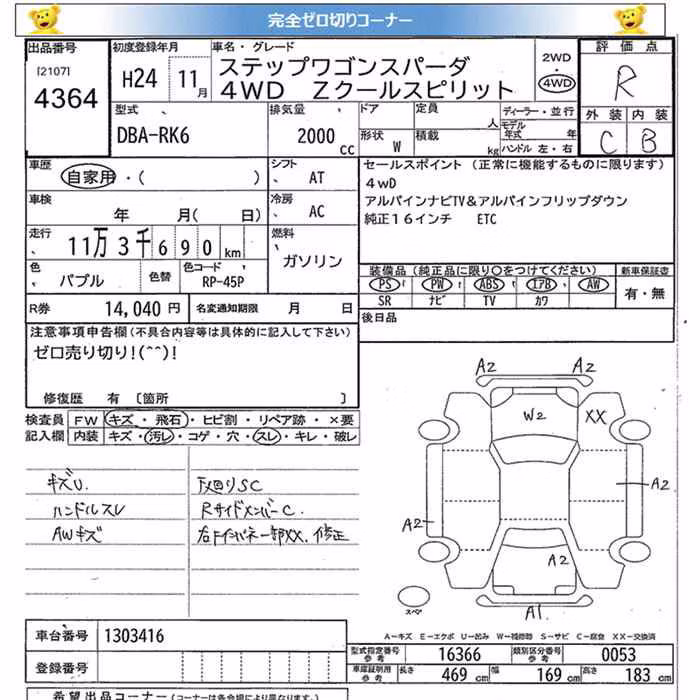 完全ゼロ切りコーナー
出品番号 初度登録年月 車名・グレード 評価点
[2107]
4364
H24 11月
ステップワゴンスパーダ
4WD Zクールスピリット
2WD
・
4WD
R
外装 内装
C B
型式 排気量 ドア 定員 ディーラー・並行
DBA-RK6 2000cc 形状 W 積載 人 kg
モデル年式 年
ハンドル 左・右
車歴 シフト セールスポイント (正常に機能するものに限ります)
自家用・( ) AT
4WD
アルパインナビTV&アルパインフリップダウン
純正16インチ ETC
車検 冷房
年 月( 日) AC
走行 燃料
11万3千690km ガソリン
色 色替 色コード
パブル RP-45P
装備品(純正品に限り○をつけてください) 新車保証書
PS PW ABS エアB AW 有・無
SR ナビ TV カワ
R券 14,040円 名変通知期限 月 日
後日品
注意事項申告欄(不具合内容等は具体的に記入して下さい)
ゼロ売り切り!(^^)!
修復歴 有 [箇所 ]
検査員 FW キズ・飛石・ヒビ割・リペア跡・×要
記入欄 内装 キズ・汚レ・コゲ・穴・スレ・キレ・破レ
キズU. 下廻りSC
ハンドルスレ RサイドメンバーC.
AWキズ 右Fインパネ一部XX. 修正
A2 A2
W2 XX
A2
A2
A2
A1
スペア
A-キズ E-エクボ U-凹み W-補修跡 S-サビ C-腐食 XX-交換済
車台番号 1303416
登録番号
型式指定番号 参考 16366 類別区分番号 参考 0053
車庫証明用 参考 長さ 469cm 幅 169cm 高さ 183cm
希望出品コーナー(コーナーは各会場により異なります)